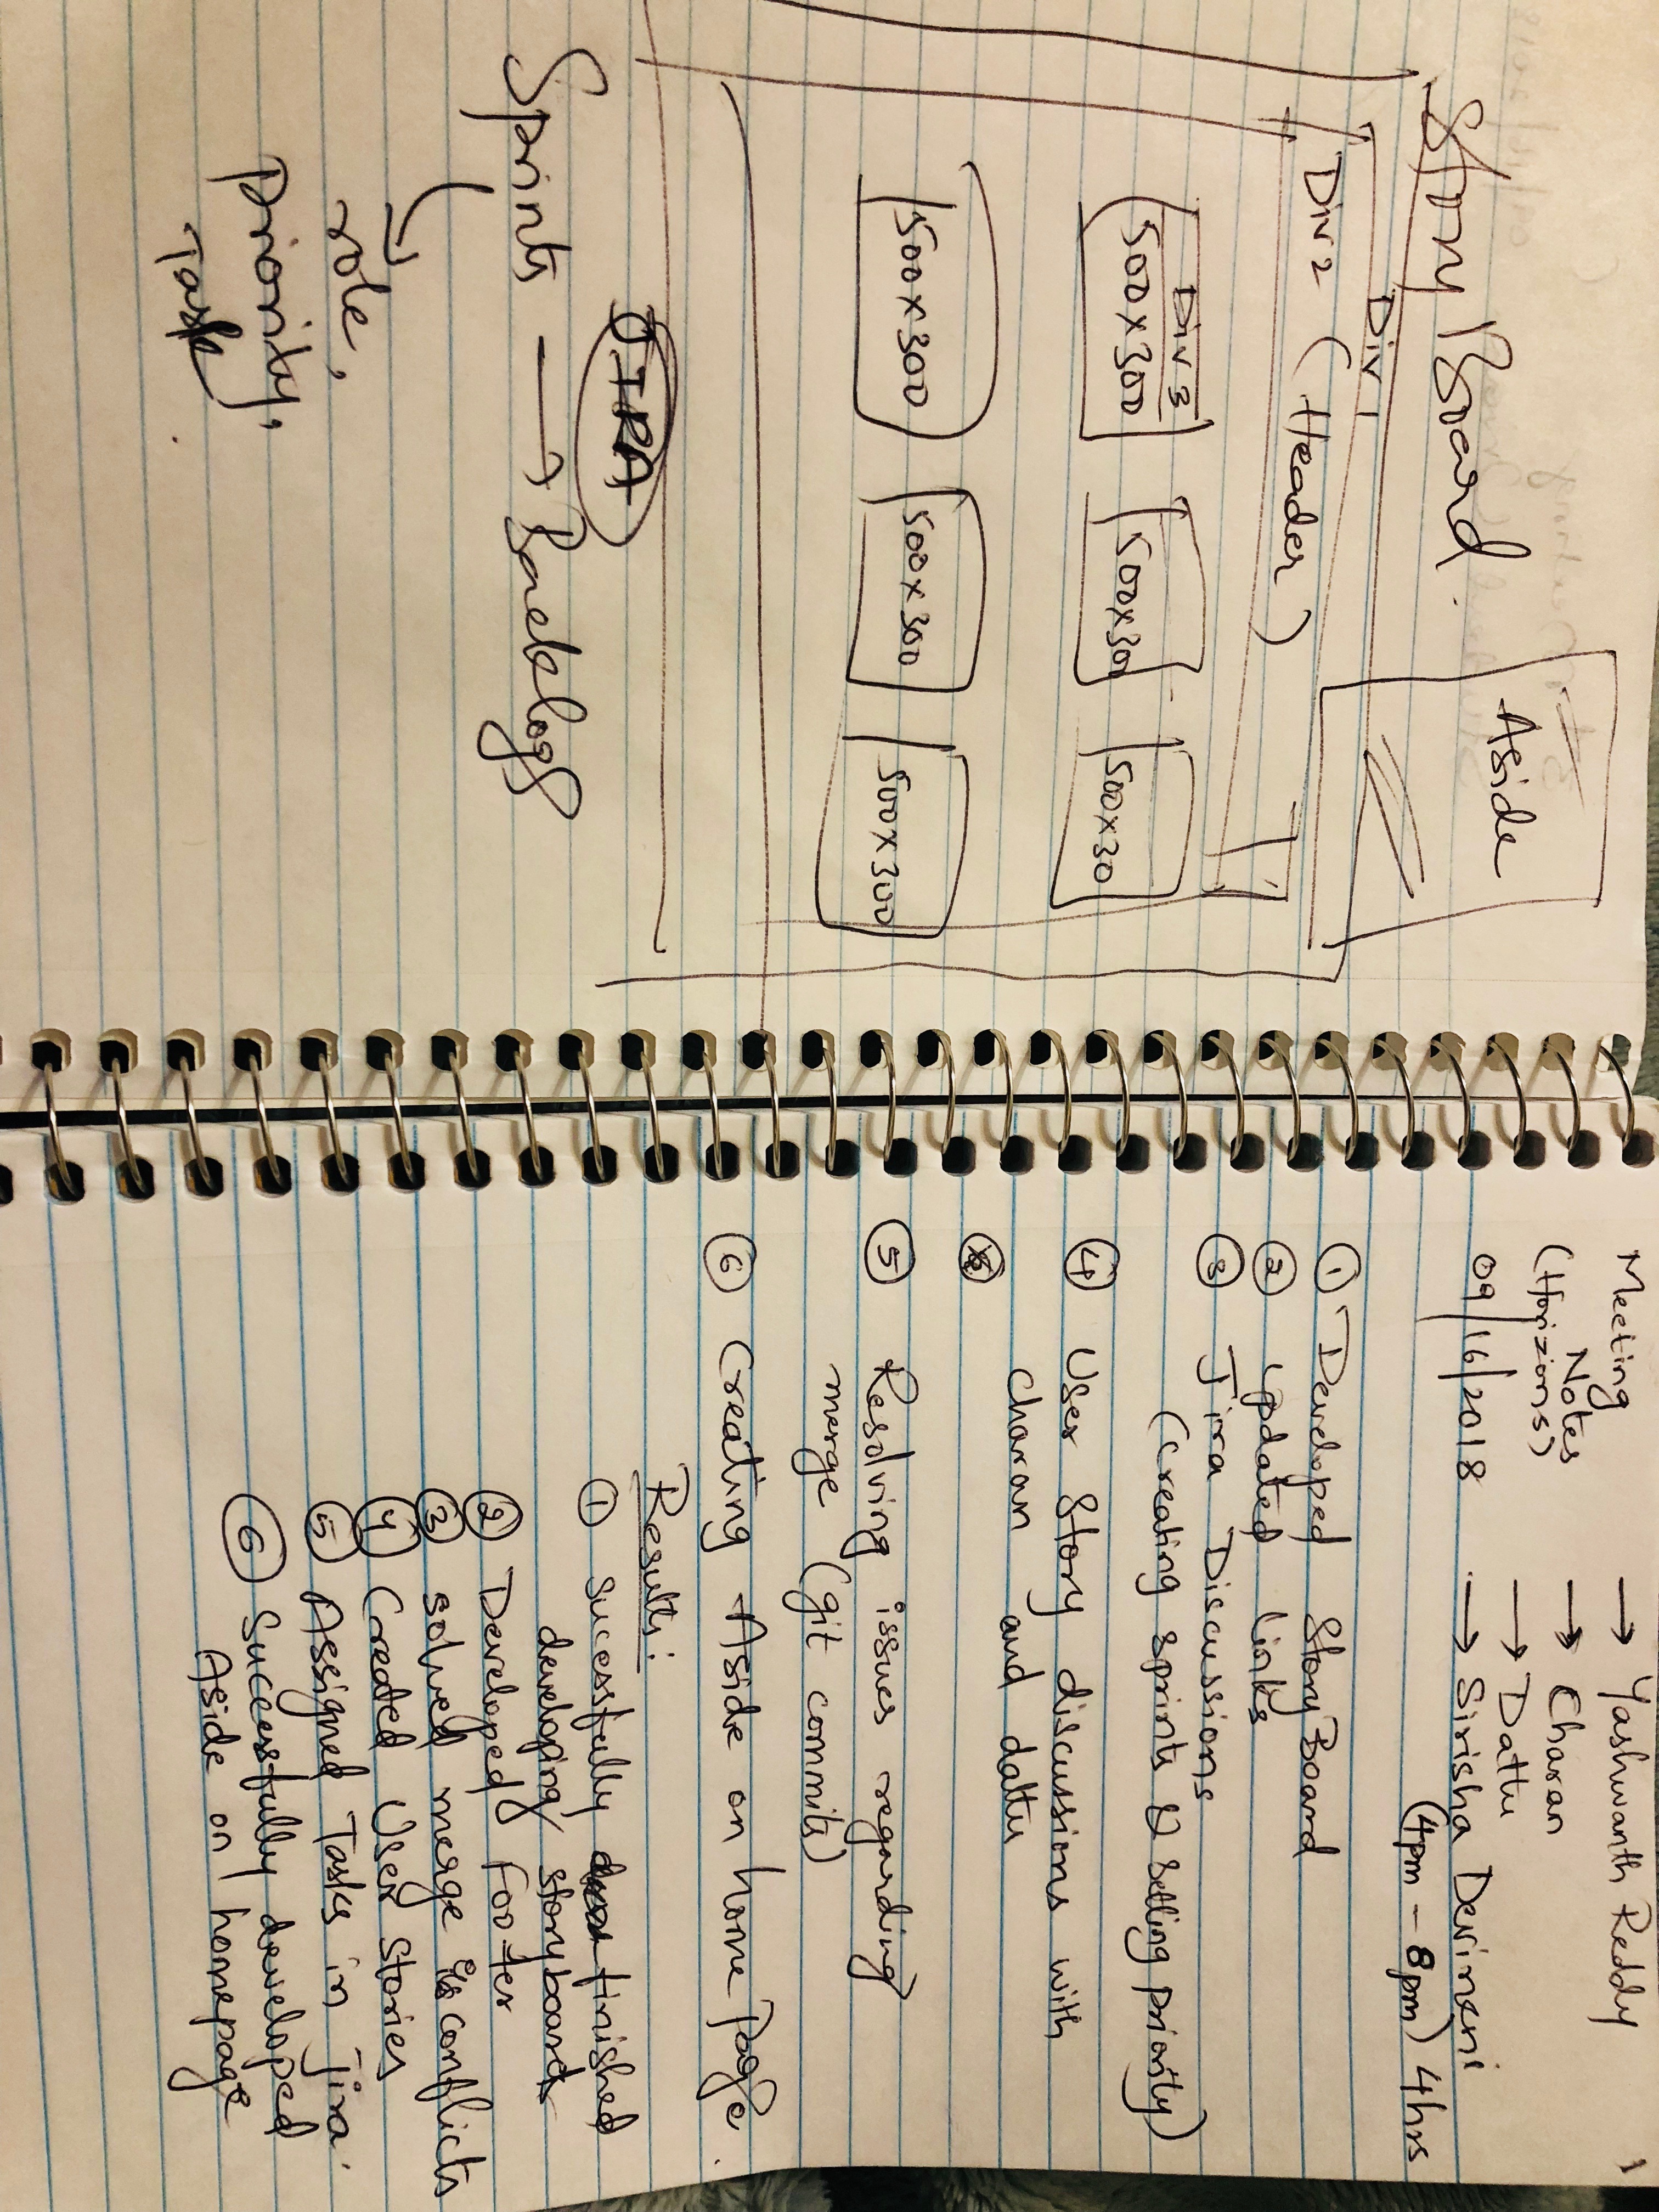 Story Board.
Aside
Div 1
Div 2 (Header)
Div 3
500 x 300
500 x 30
500 x 30
500 x 300
500 x 300
500 x 300
JIRA
Sprints → Backlog
role,
priority,
Task
Meeting Notes → Yashwanth Reddy
(Horizions) → Charan
→ Dattu
09/16/2018 → Sirisha Devineni
(4pm - 8pm) 4hrs
① Developed Story Board
② Updated links
③ Jira Discussions
(creating sprints & setting priority)
④ User Story discussions with
charan and dattu
⑤ Resolving issues regarding
merge (git commits)
⑥ Creating Aside on home Page.
Results:
① Successfully finished
developing storyboard
② Developed footer
③ solved merge conflicts
④ Created User Stories
⑤ Assigned Tasks in Jira.
⑥ Successfully developed
Aside on homepage